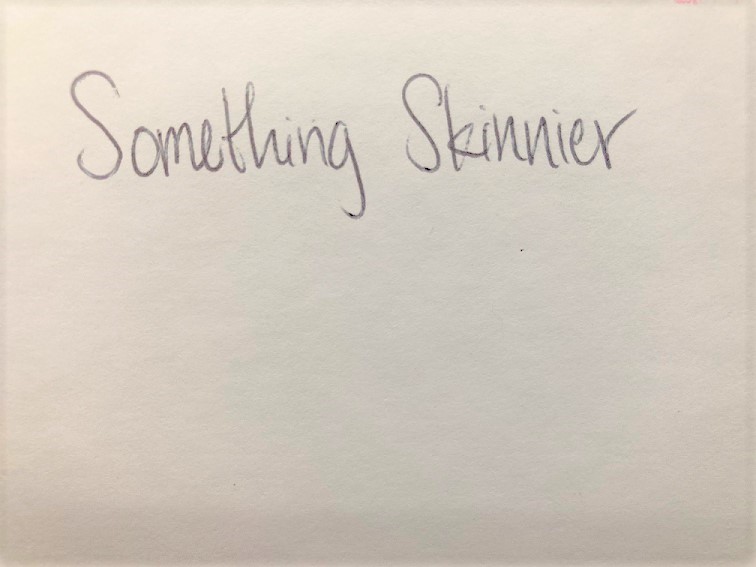 Something Skinnier